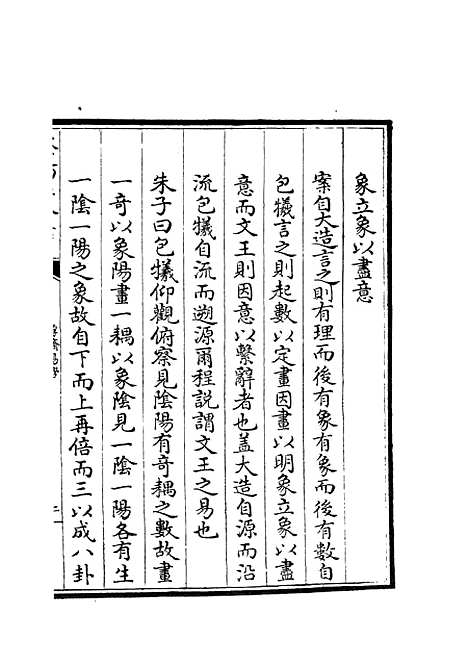 象立象以盡意
案自大造言之則有理而後有象有象而後有數自
包犧言之則起數以定畫因畫以明象立象以盡
意而文王則因意以繫辭者也蓋大造自源而沿
流包犧自流而遡源爾程説謂文王之易也
朱子曰包犧仰觀俯察見陰陽有奇耦之數故畫
一奇以象陽畫一耦以象陰見一陰一陽各有生
一陰一陽之象故自下而上再倍而三以成八卦